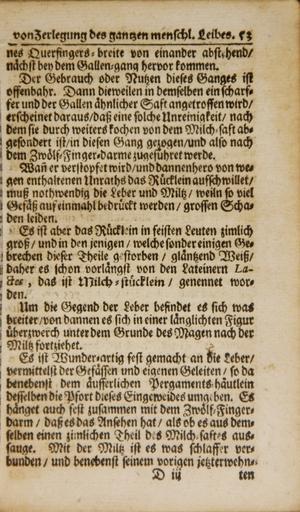 von Zerlegung des gantzen menschl. Leibes. 53
nes Querfingers-breite von einander abstehend/
nächst bey dem Gallen-gang hervor kommen.
Der Gebrauch oder Nutzen dieses Ganges ist
offenbahr. Dann dieweilen in demselben ein scharf-
fer und der Gallen ähnlicher Saft angetroffen wird/
erscheinet daraus/daß eine solche Unreinigkeit/ nach
dem sie durch weiters kochen von dem Milch-saft ab-
gesondert ist/in diesen Gang gezogen/und also nach
dem Zwölf-Finger-darme zugeführet werde.
Wañ er verstopfet wird/und dannenhero von we-
gen enthaltenen Unraths das Rücklein aufschwillet/
muß nothwendig die Leber und Miltz/ weiln so viel
Gefäß auf einmahl bedrückt werden/ grossen Scha-
den leiden.
Es ist aber das Rücklein in feisten Leuten zimlich
groß/ und in den jenigen/ welche sonder einigen Ge-
brechen dieser Theile gestorben/ gläntzend Weiß/
daher es schon vorlängst von den Lateinern La-
ctes, das ist Milch-stücklein/ genennet wor-
den.
Um die Gegend der Leber befindet es sich was
breiter/von dannen es sich in einer länglichten Figur
überzwerch unter dem Grunde des Magen nach der
Miltz fortziehet.
Es ist Wunder-artig fest gemacht an die Leber/
vermittelst der Gefässen und eigenen Geleiten/ so da
benebenst dem äusserlichen Pergaments-häutlein
desselben die Pfort dieses Eingeweides umgeben. Es
hänget auch fest zusammen mit dem Zwölf-Finger-
darm/ daß es das Ansehen hat/ als ob es aus dem-
selben einen zimlichen Theil des Milch-saftes aus-
sauge. Mit der Miltz ist es was schlaffer ver-
bunden/ und benebenst seinem vorigen jetzterwehn-
D iij ten